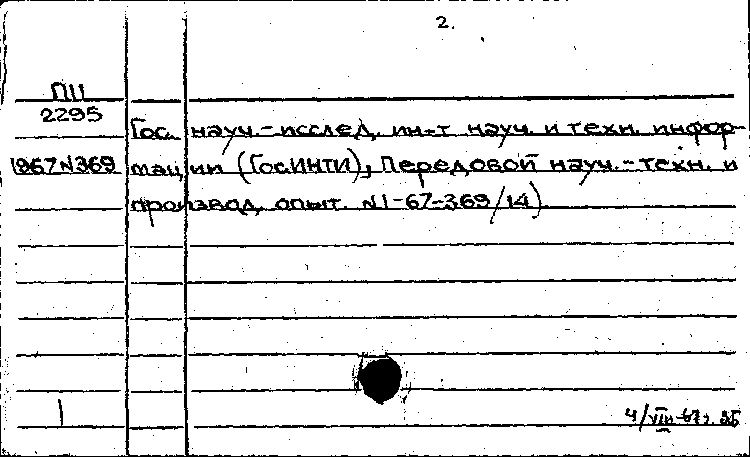 2.
П11
2295
Гос. науч.-исслед. ин-т науч. и техн. инфор-
1967 N369 мации (Гос.ИНТИ), Передовой науч.-техн. и
производ. опыт. N1-67-369/14)
1
4/VIII-67г.